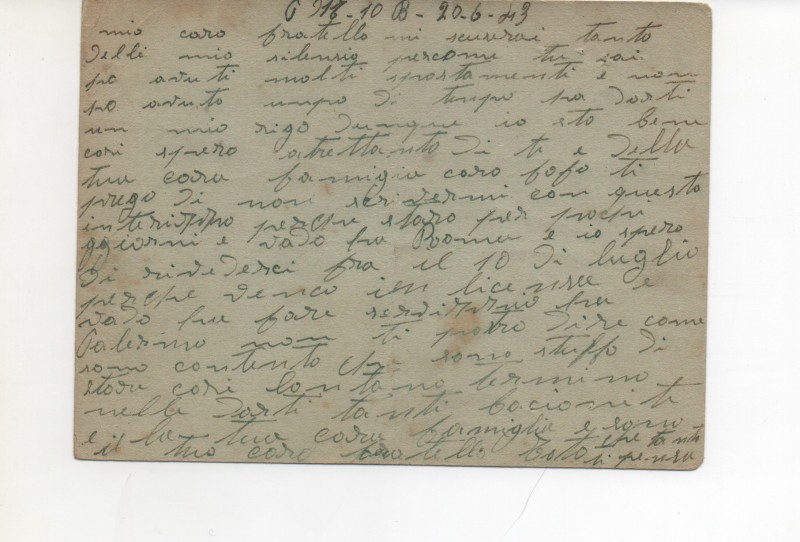 P M - 10 B - 20-6-43
mio caro fratello mi scuserai tanto
delli mio silensio percome tu sai
po avuti molti spostamenti e non
po avuto unpo di tenpo pa darti
un mio rigo dunque io sto bene
cosi spero atrettanto di te e della
tua cara famiglia caro fofo ti
prego di non scrivermi con questo
interizzo perche staro per pochi
giorni e vado ha Roma e io spero
di rivederci fra il 10 di luglio
perche venco in licensa e
vado ha fare servizzio ha
Palermo non ti posso dire come
sono contento che sono stuffo di
stare cosi lontano termino
nelle darti tanti bacioni ti
e la tua cara famiglia e sono
il tuo caro fratello Toto che tanti
ti pensa